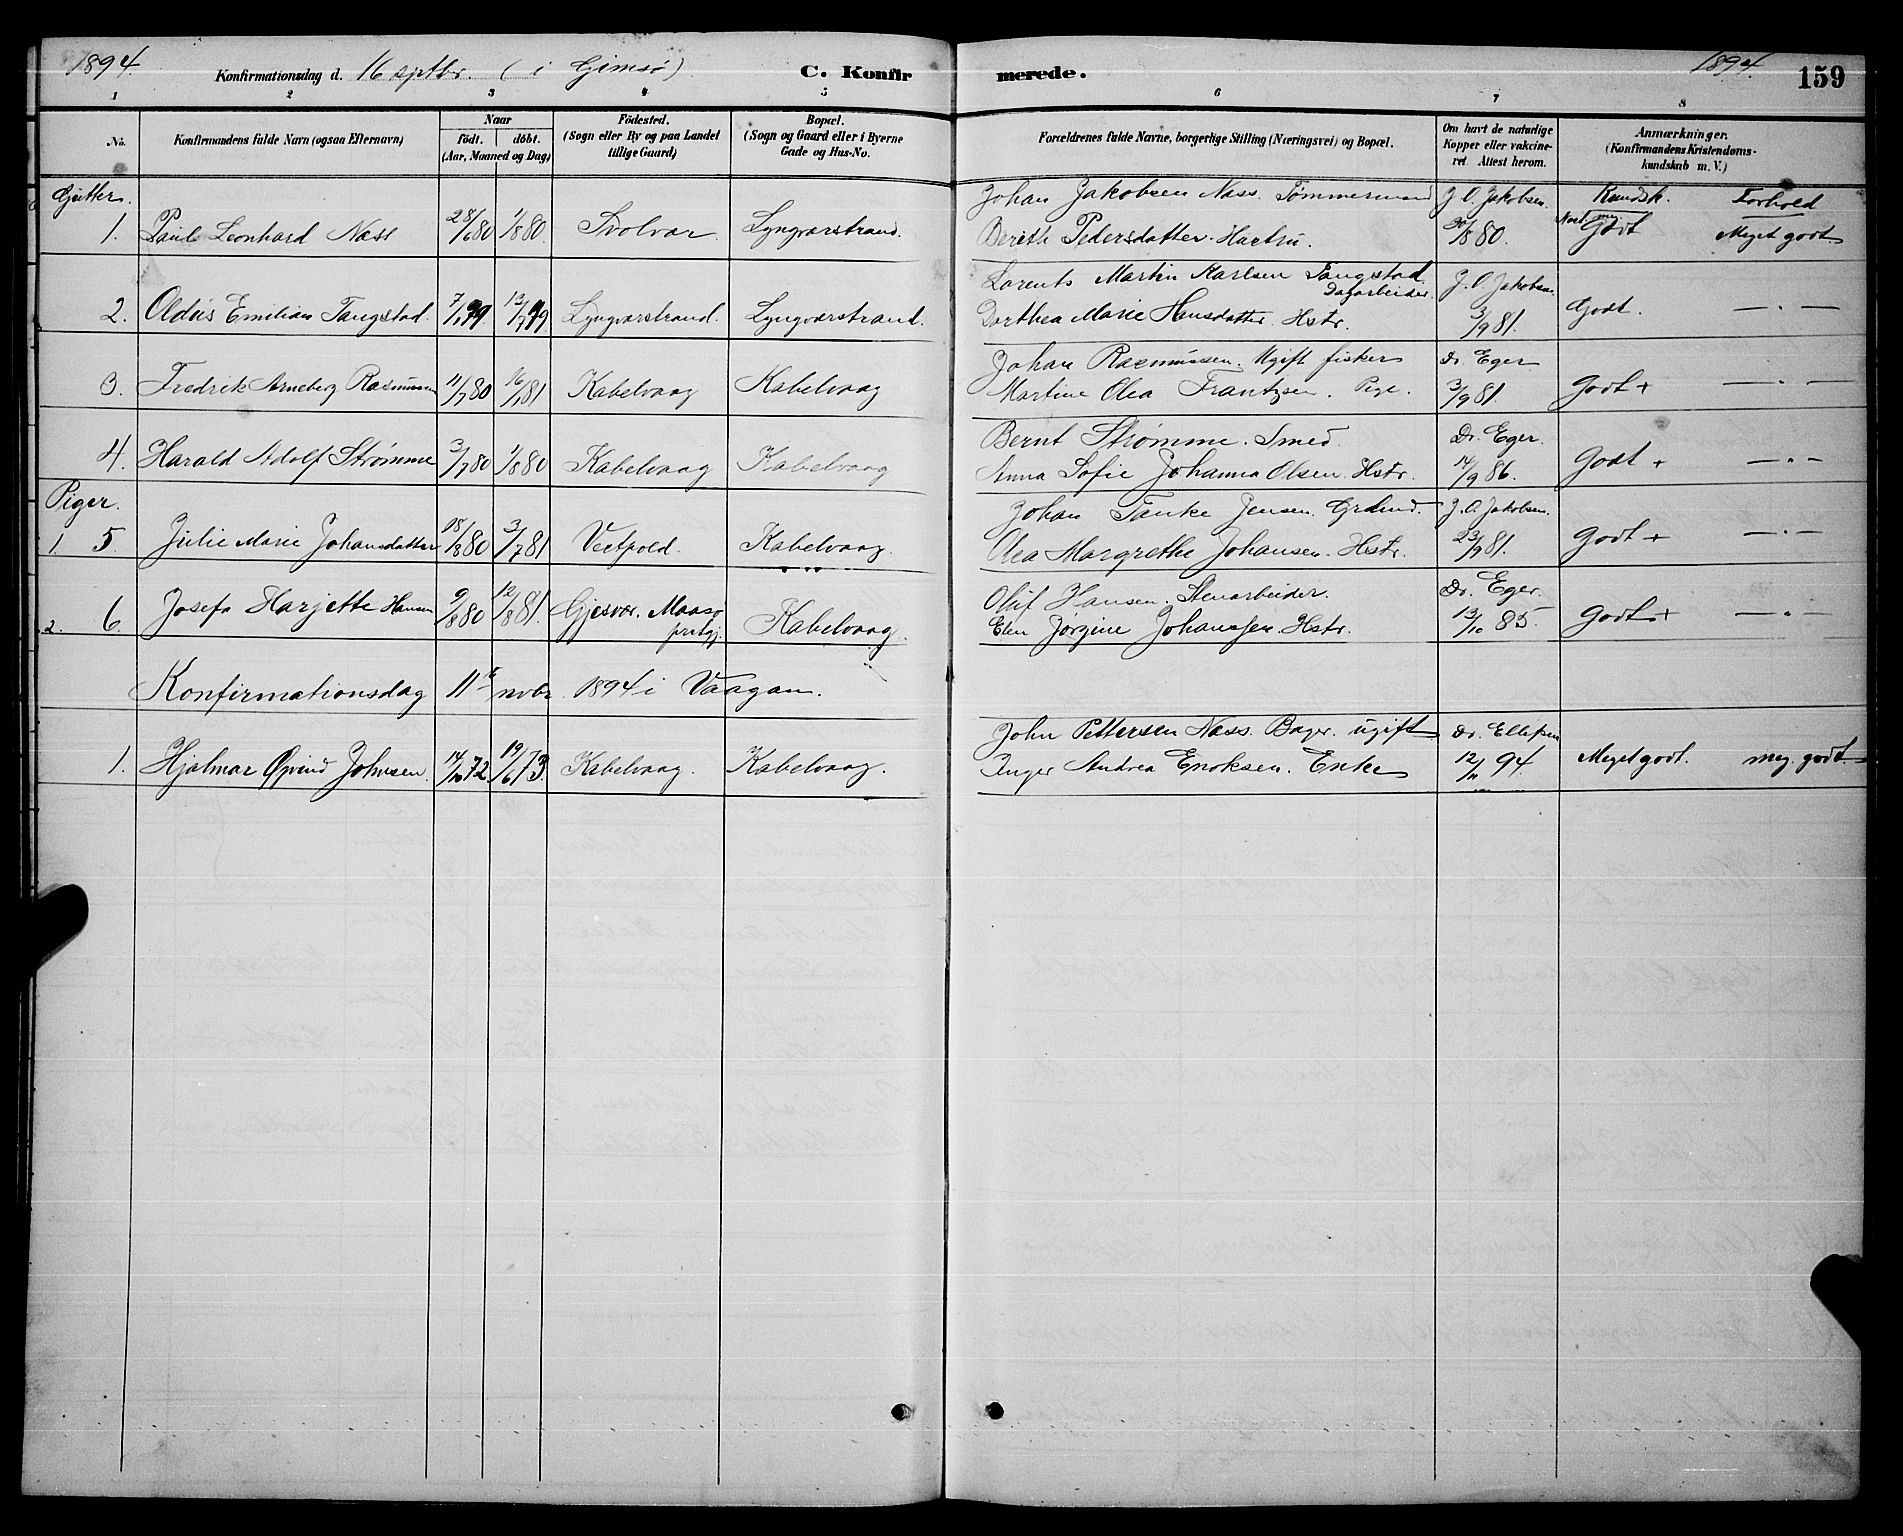 1894.
Konfirmationsdag d. 16 sptbr. (i Gimsø)
C. Konfirmerede.
1894.
159
1 2 3 4 5 6 7 8
No.
Konfirmandens fulde Navn (ogsaa Efternavn)
Naar
født. døbt.
(Aar, Maaned og Dag)
Fødested.
(Sogn eller By og paa Landet
tillige Gaard)
Bopæl.
(Sogn og Gaard eller i Byerne
Gade og Hus-No.
Forældrenes fulde Navne, borgerlige Stilling (Næringsvei) og Bopæl.
Om havt de naturlige
Kopper eller vakcine-
ret. Attest herom.
Anmærkninger.
(Konfirmandens Kristendoms-
kundskab m. V.)
Gutter.
Johan Jakobsen Næss. Tømmermand J. O. Jakobsen. Kundsk. Forhold
1. Paul Leonhard Næss 28/6 80 1/8 80. Svolvær. Lyngværstrand. Berith Pedersdatter. Hustru. 30/8 80. Godt Meget godt
Lorents Martin Karlsen Tangstad J. O. Jakobsen.
Dagarbeider.
2. Oldus Emilian Tangstad. 7/1 79. 13/7 79 Lyngværstrand. Lyngværstrand. Dorthea Marie Hansdatter. Hstr. 3/9 81. Godt. — " —
Johan Rasmussen. Ugift fisker Dr. Eger
3. Fredrik Arneberg Rasmussen 11/7 80 16/1 81 Kabelvaag Kabelvaag Martine Olea Frantzen. Pige. 3/9 81. Godt + — " —
Bernt Strømme. Smed. Dr. Eger.
4. Harald Adolf Strømme 3/7 80 1/8 80 Kabelvaag Kabelvaag Anna Sofie Johanna Olsen. Hstr. 14/9 86. Godt + — " —
Piger.
Johan Tanke Jensen. Grdmd. J. O. Jakobsen.
1. 5. Julie Marie Johansdatter 18/8 80 3/7 81 Vestpold. Kabelvaag. Olea Margrethe Johansen. Hstr. 23/9 81. Godt + — " —
Oluf Hansen. Stenarbeider. Dr. Eger.
2. 6. Josefa Harjette Hansen 9/8 80 12/8 81. Gjesvær. Maasø Kabelvaag. Elen Jørgine Johansen. Hstr. 13/10 85. Godt + — " —
prstgj.
Konfirmationsdag 11te novbr. 1894 i Vaagan.
John Pettersen Næss. Bager. ugift Dr. Ellefsen
1. Hjalmar Øyvind Johnsen. 14/10 72 19/6 73. Kabelvaag. Kabelvaag. Inger Andrea Enoksen. Enke 12/11 94 Meget godt. meg. godt